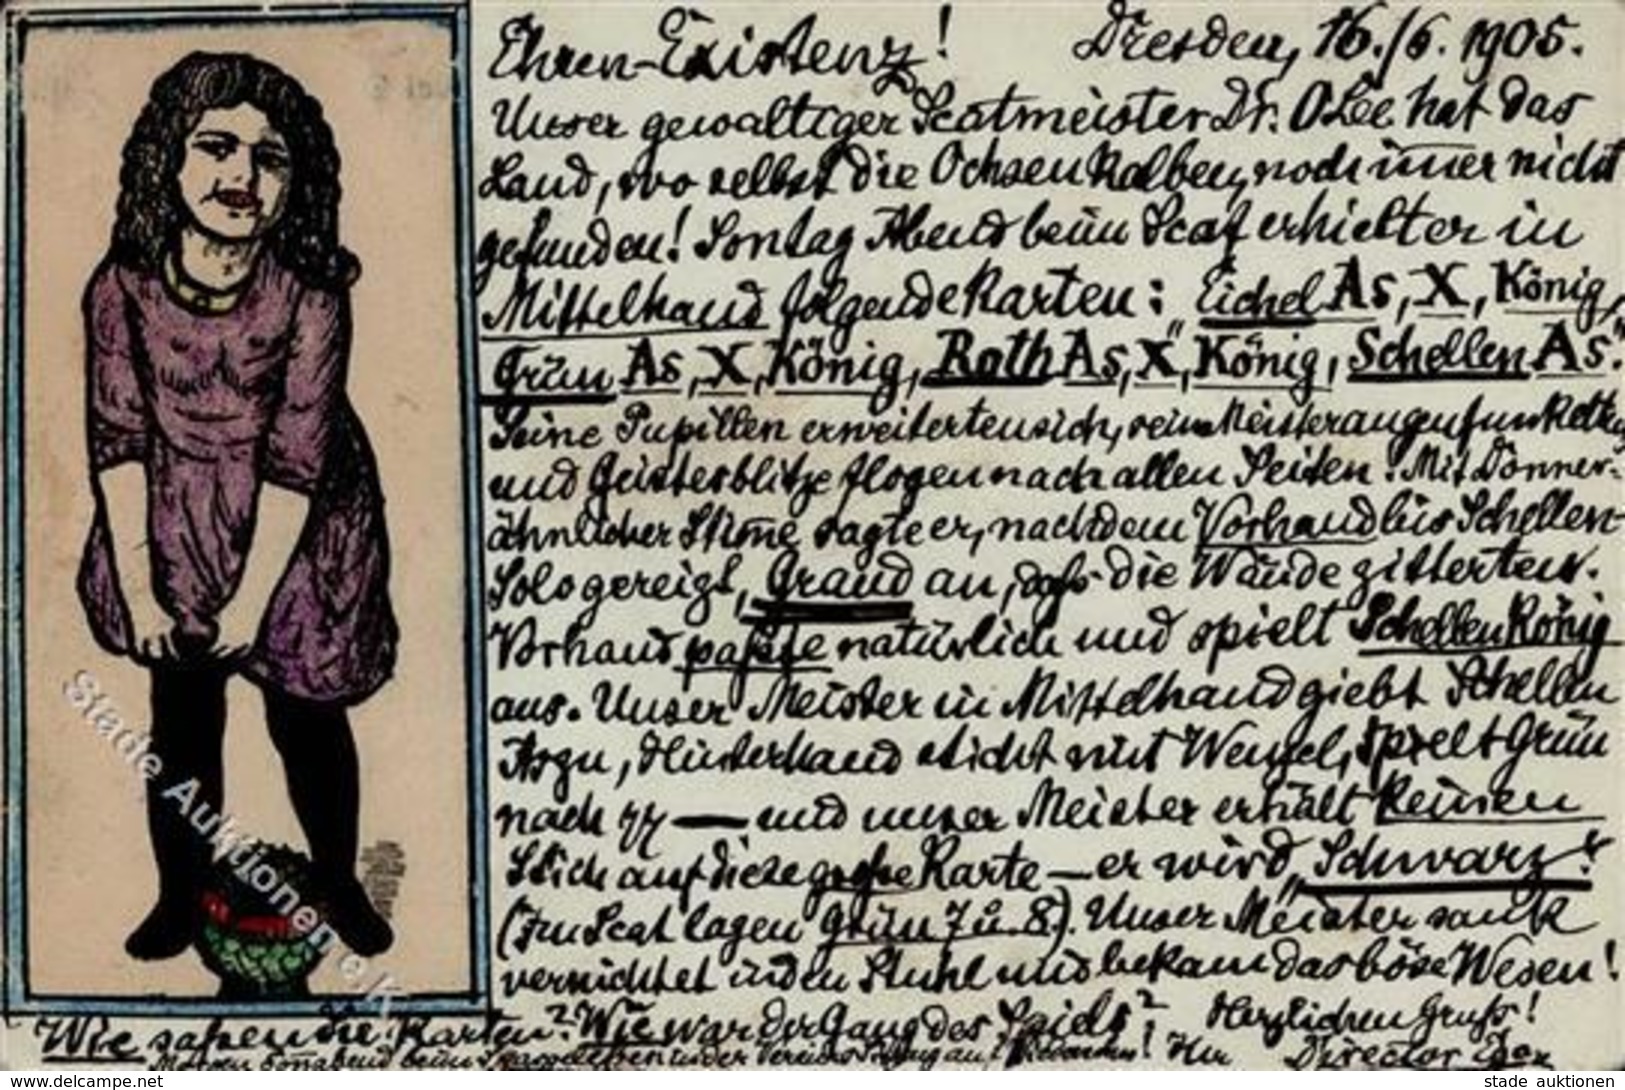 Ehren-Existenz! Dresden, 16./6. 1905.
Unser gewaltiger Scatmeister Dr. OLee hat das
Land, wo selbst die Ochsen Kalben, noch im̅er nicht
gefunden! Sontag Abend beim Scat erhielt er in
Mittelhand folgende Karten: Eichel As, X, König,
Grün As, X, König, Roth As, X, König, Schellen As."
Seine Pupillen erweiterten sich, seine Meisteraugen funkelten
und Geisterblitze flogen nach allen Seiten! Mit Donner-
ähnlicher Stim̅e sagte er, nachdem Vorhand bis Schellen-
Solo gereizt, Grand an, daß die Wände zitterten.
Vorhand paßte natürlich und spielt Schellen König
aus. Unser Meister in Mittelhand giebt Schellen
As zu, Hinterhand sticht mit Wenzel, spielt Grün
nach — und unser Meister erhält keinen
Stich auf diese große Karte — er wird „Schwarz"!
(Im Scat lagen Grün 7 u. 8). Unser Meister sank
vernichtet in den Stuhl und bekam das böse Wesen!
Wie saßen die Karten? Wie war der Gang des Spiels? Herzlichen Gruß!
Morgen Sonnabend beim Director
Stade Auktionen e.K.
www.delcampe.net
stade auktionen